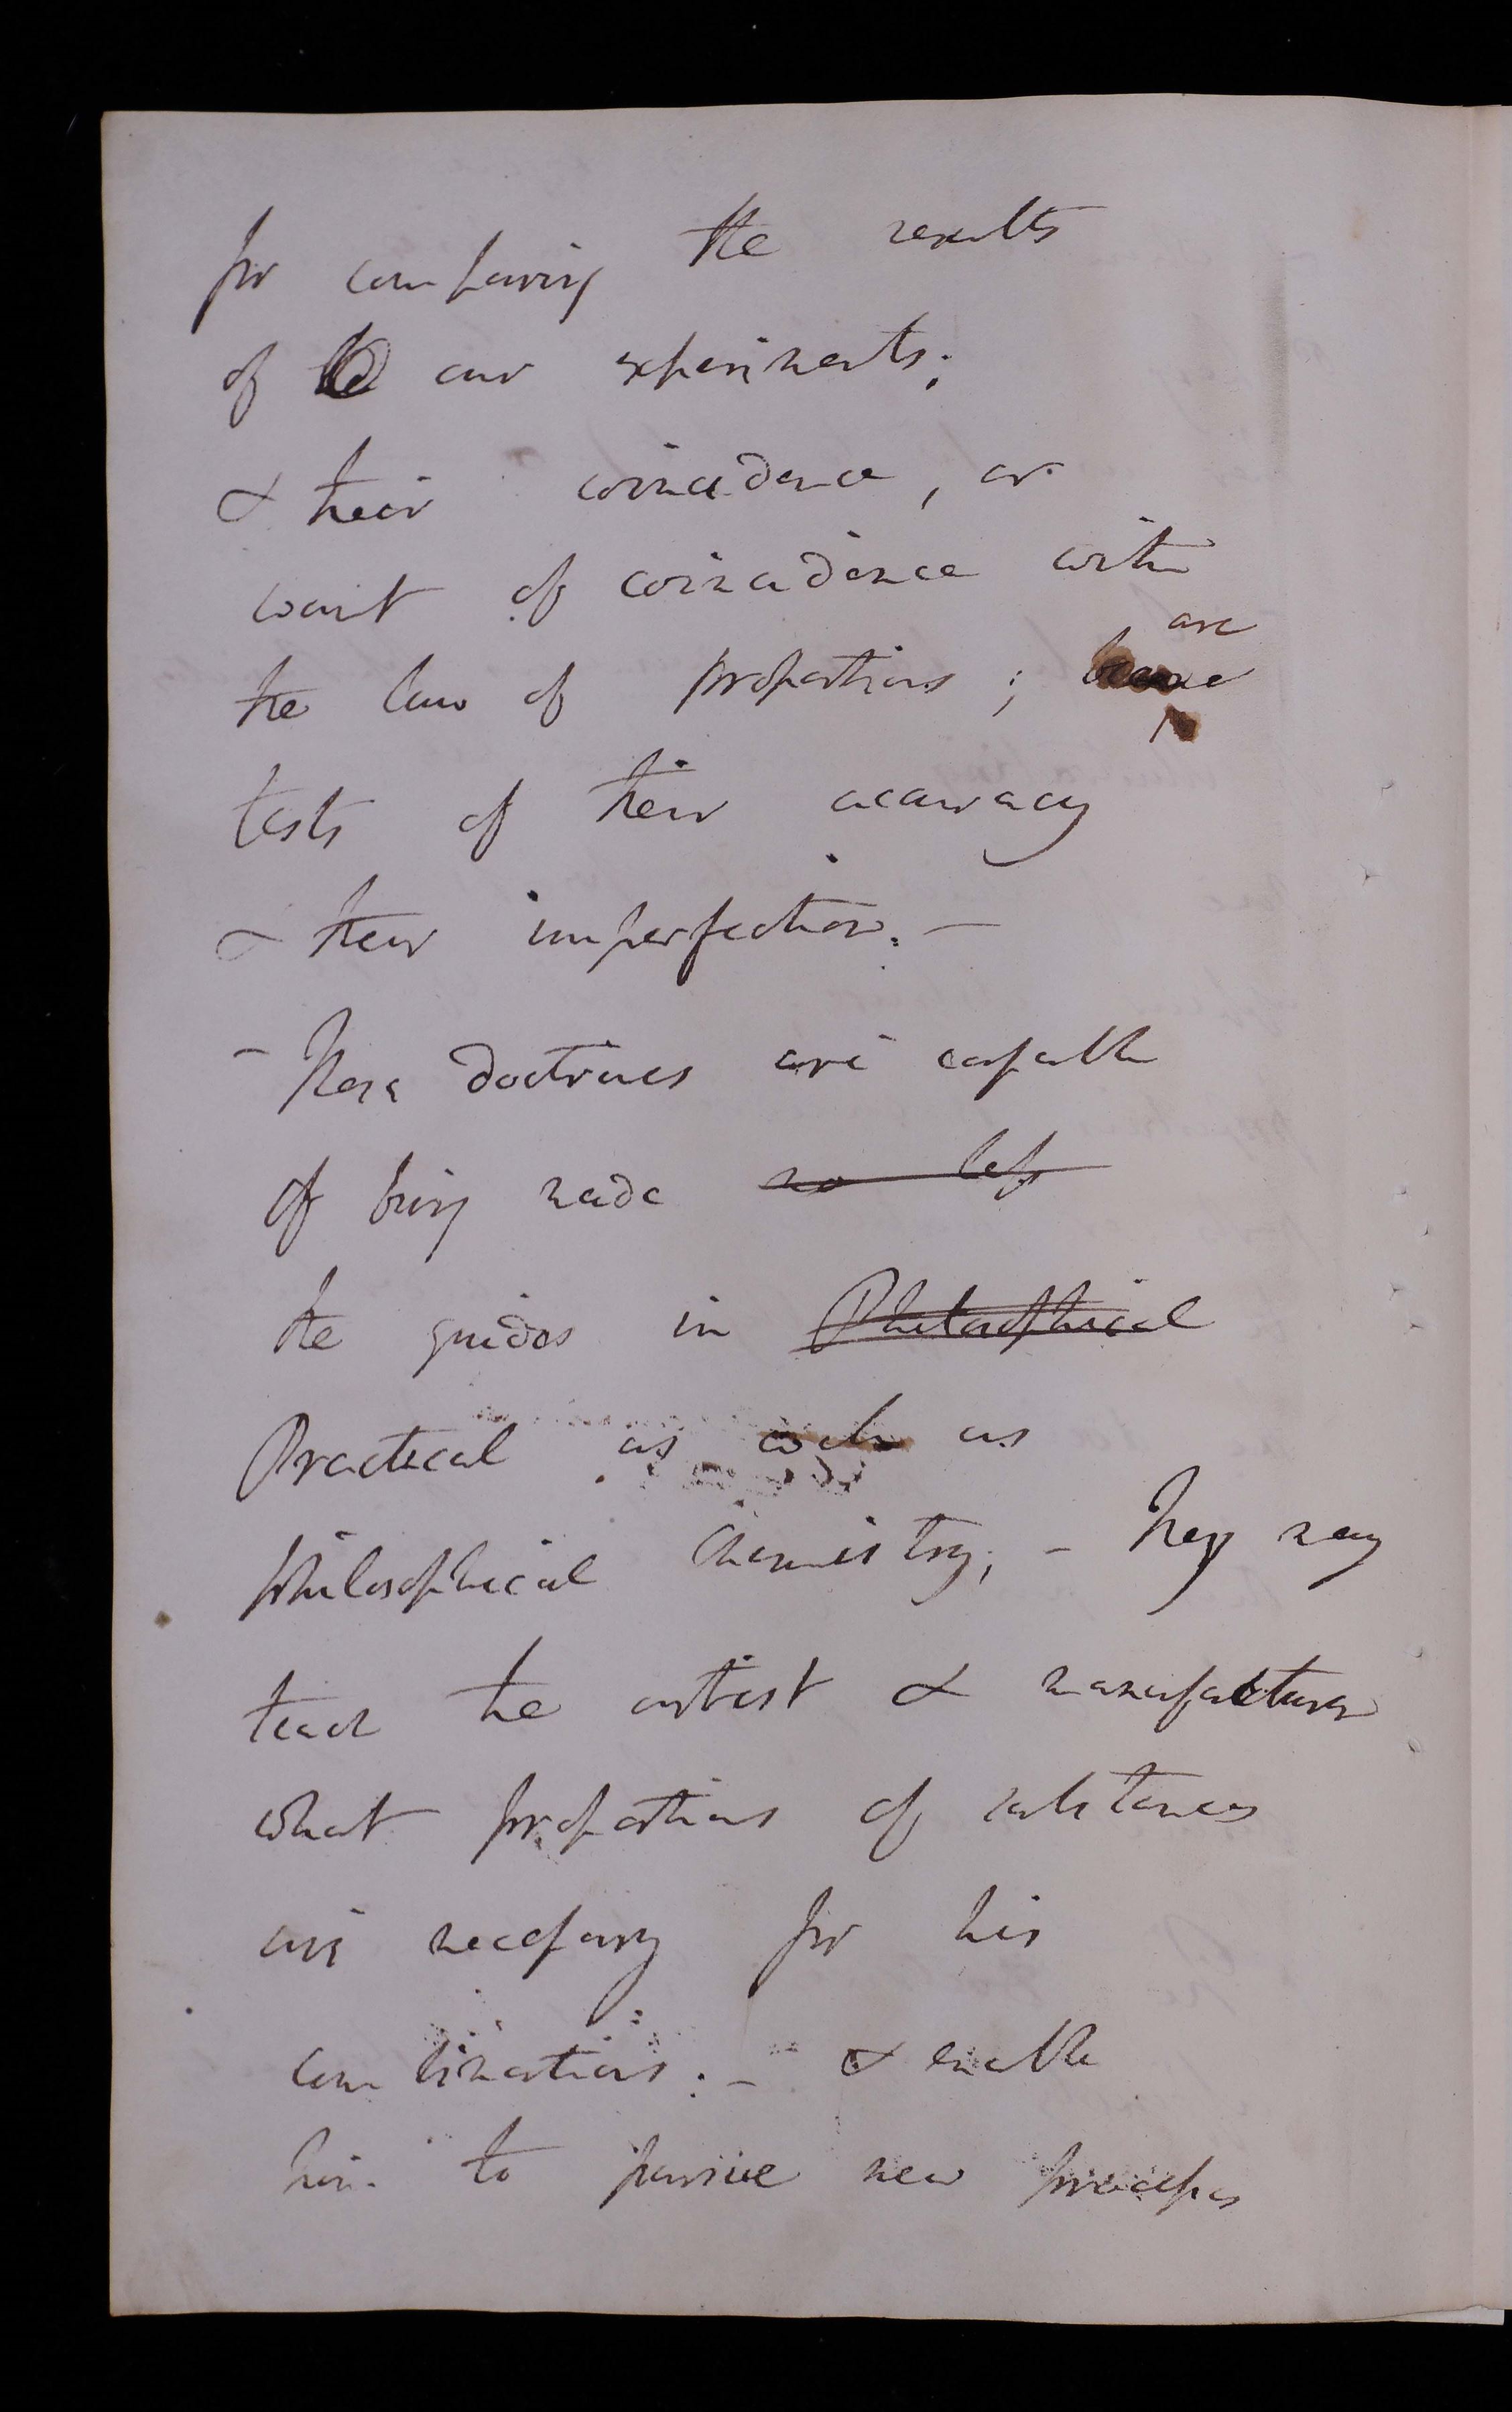 for comparing the results
of our experiments;
& their coincidence, or
want of coincidence with
are
the law of proportions;
tests of their accuracy
& their imperfection. -
- These doctrines are capable
of being made no less
the guides in Philosophical
Practical as well as
philosophical Chemistry; - They may
teach the artist & manufacturer
what proportions of substances
are necessary for his
combinations: - & enable
him to pursue new processes